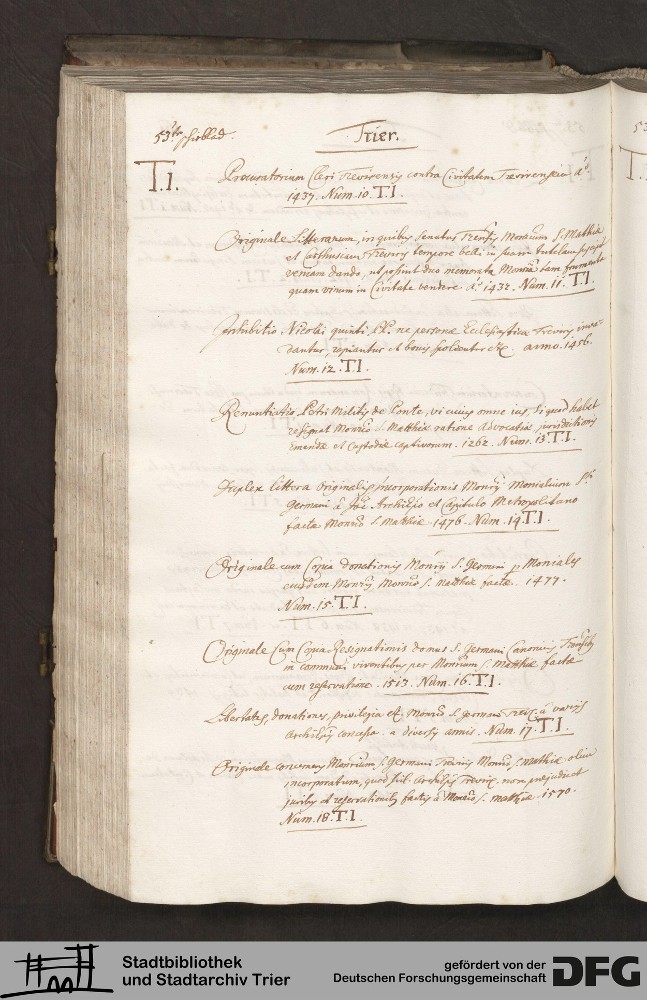 53te schieblad.
Trier.
T.1.
Procuratorium Cleri Trevirensis contra Civitatem Trevirensem aº
1437. Num. 10. T.1.
Originale Litterarum, in quibus Senatus Monrium S. Matthiæ
et Carthusiam Treviris tempore belli in suam tutelam
veniam dando, ut possint duo memorata tam frumenta
quam vinum in Civitate vendere aº 1432. Num. 11. T.1.
Inhibitio Nicolai quinti, PP. ne personæ Ecclesiasticæ Treviris inva-
dantur, capiantur et bonis spolientur etc. anno. 1456.
Num. 12. T.1.
Renuntiatio Petri Militis de Ponte, vi cuius omne ius, si quod habet
resignat Monrio S. Matthiæ ratione Advocatiæ, jurisdictionis
et Custodiæ captivorum. 1262. Num. 13. T.1.
Duplex littera Originalis Incorporationis Monialium Sti
Germani â et Capitulo Metropolitano
facta Monrio S. Matthiæ. 1476. Num. 14 T.1.
Originale cum Copia donationis Monrii S. Germani p Moniales
eiusdem Monrii Monrio S. Matthiæ factæ. 1477.
Num. 15. T.1.
Originale Cum Copia Resignationis domus S. Germani Canonicis
in communi viventibus per Monrium S. Matthiæ factæ
cum reservatione. 1513. Num. 16. T.1.
Libertates, donationes, privilegia etc. Monrio S. Germani â variis
concessa. a diversis annis. Num. 17. T.1.
Originale Monrium S. Germani Treviris Monrio S. Matthiæ olim
incorporatum, quod non præjudicet
juribus et reservationibus factis â Monrio S. Matthiæ. 1570.
Num. 18. T.1.
Stadtbibliothek
und Stadtarchiv Trier
gefördert von der
Deutschen Forschungsgemeinschaft
DFG